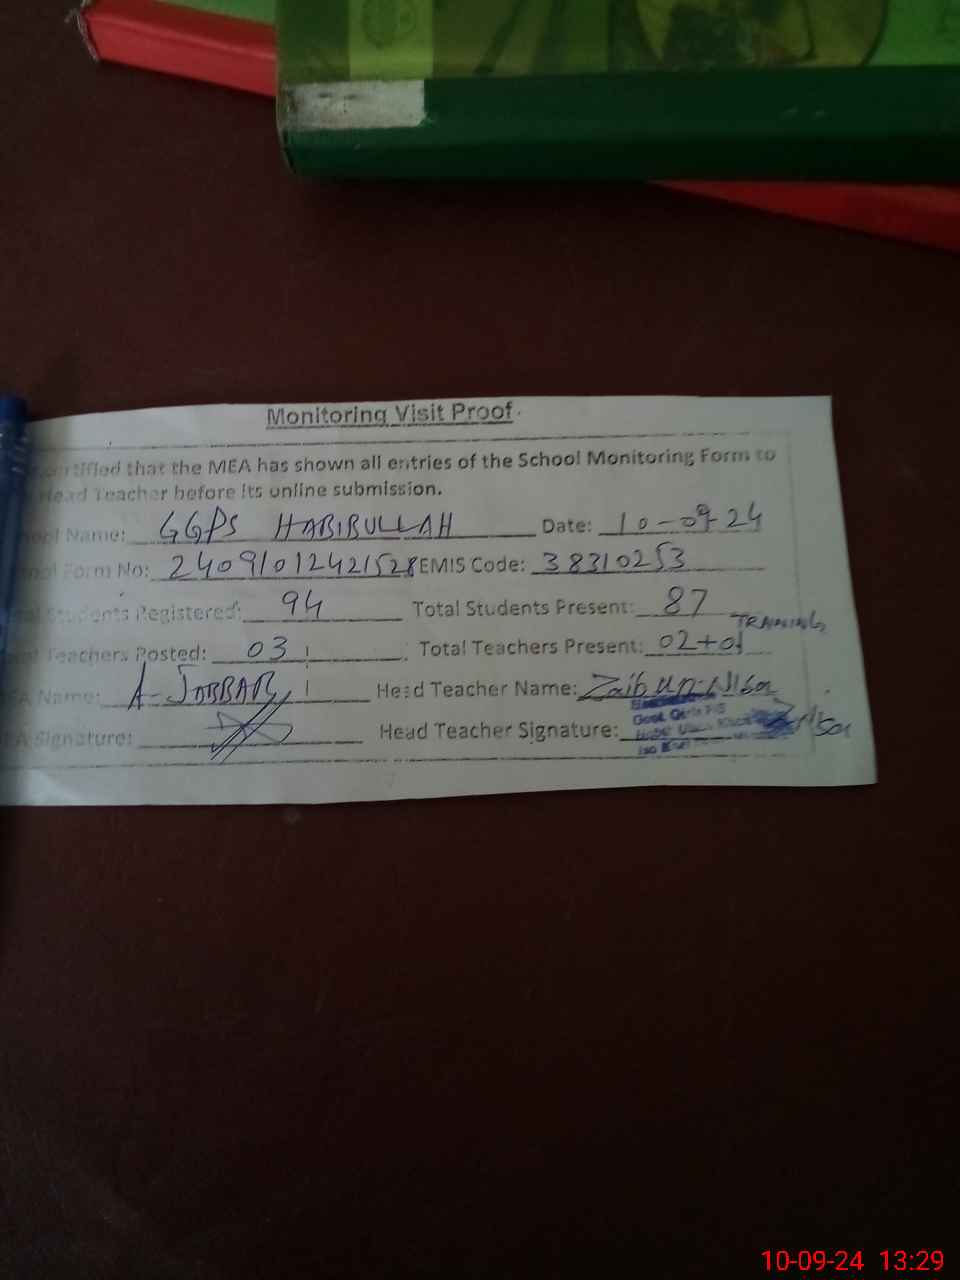 Monitoring Visit Proof
certified that the MEA has shown all entries of the School Monitoring Form to
Head Teacher before its online submission.
Name: GGPS HABIBULLAH Date: 10-09-24
Form No: 24091012421528 EMIS Code: 38310253
Students Registered: 94 Total Students Present: 87
Teachers Posted: 03 Total Teachers Present: 02+01 TRAINING
Name: A-JABBAR Head Teacher Name: Zaib un-Nisa
Signature: Head Teacher Signature:
Govt. Girls P/S
10-09-24 13:29